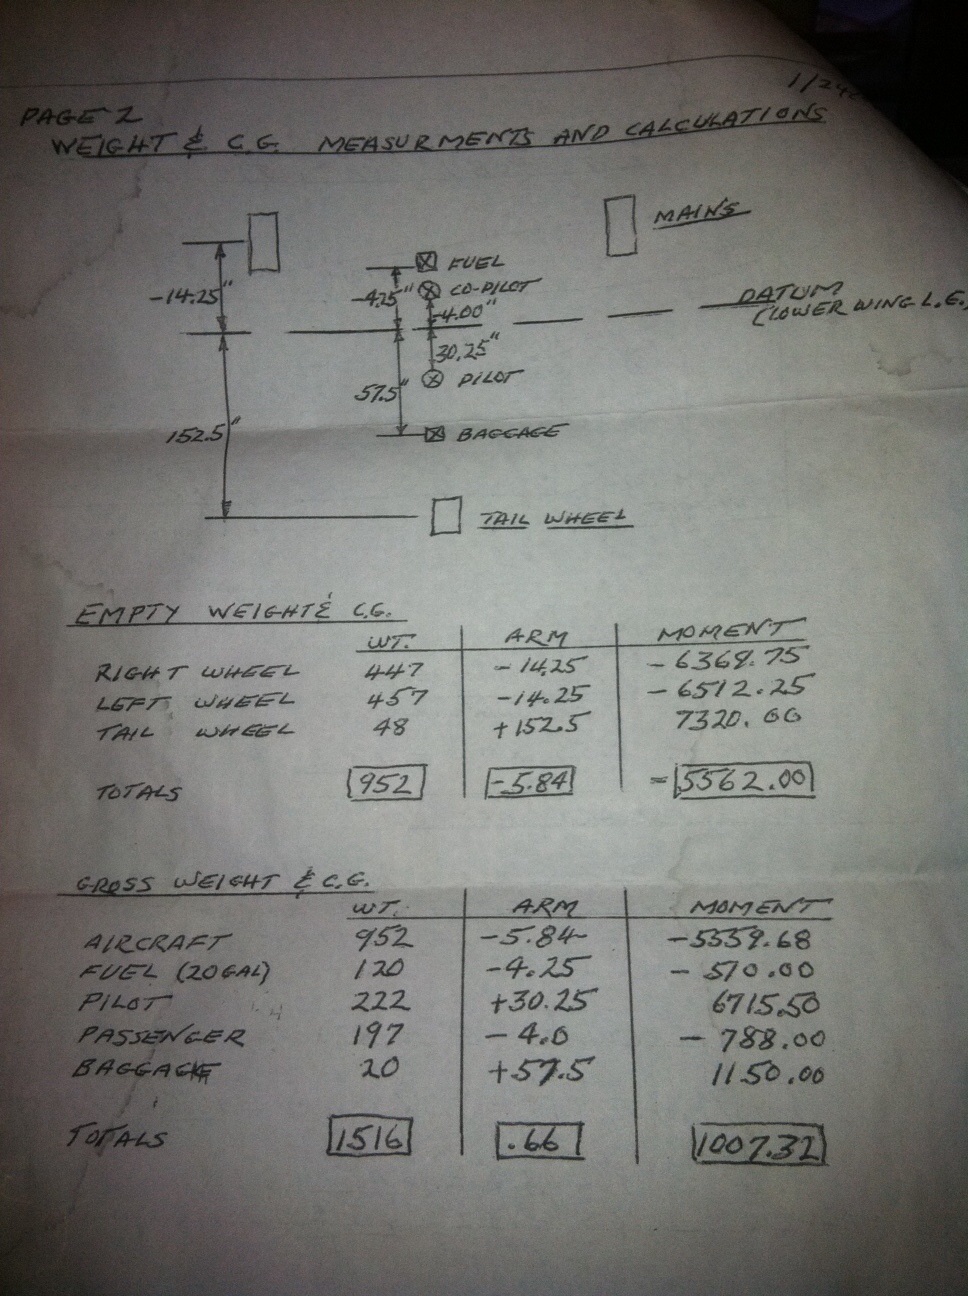 1/24
PAGE 2
WEIGHT & C.G. MEASURMENTS AND CALCULATIONS
MAINS
FUEL
-14.25"
-4.25"
CO-PILOT
-4.00"
DATUM
(LOWER WING L.E.)
30.25"
PILOT
57.5"
152.5"
BAGGAGE
TAIL WHEEL
EMPTY WEIGHT & C.G.
WT. ARM MOMENT
RIGHT WHEEL 447 -14.25 -6369.75
LEFT WHEEL 457 -14.25 -6512.25
TAIL WHEEL 48 +152.5 7320.00
TOTALS 952 -5.84 -5562.00
GROSS WEIGHT & C.G.
WT. ARM MOMENT
AIRCRAFT 952 -5.84 -5559.68
FUEL (20 GAL) 120 -4.25 -510.00
PILOT 222 +30.25 6715.50
PASSENGER 197 -4.0 -788.00
BAGGAGE 20 +57.5 1150.00
TOTALS 1516 .66 1007.32